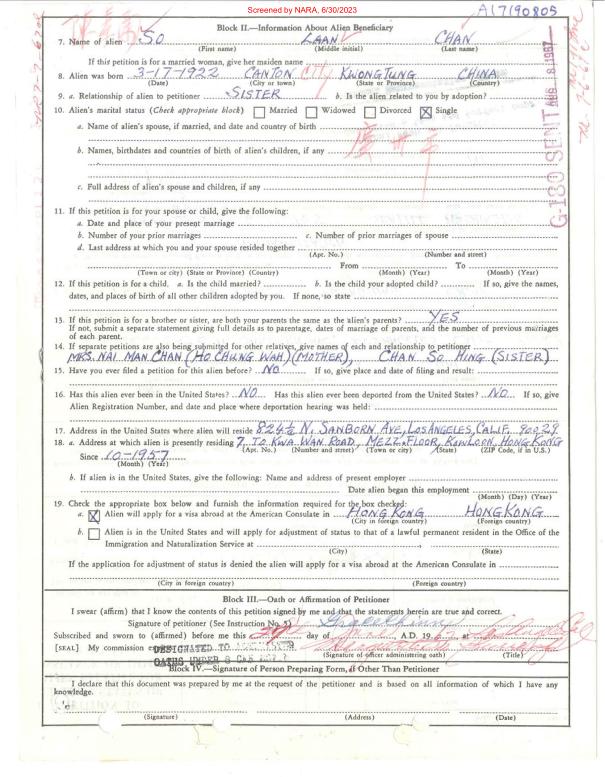 Screened by NARA, 6/30/2023
A17190805
Block II.—Information About Alien Beneficiary
7. Name of alien SO LAAN CHAN
(First name) (Middle initial) (Last name)
If this petition is for a married woman, give her maiden name
8. Alien was born 3-17-1922 CANTON CITY KWONGTUNG CHINA
(Date) (City or town) (State or Province) (Country)
9. a. Relationship of alien to petitioner SISTER b. Is the alien related to you by adoption?
10. Alien's marital status (Check appropriate block) Married Widowed Divorced X Single
a. Name of alien's spouse, if married, and date and country of birth
b. Names, birthdates and countries of birth of alien's children, if any
c. Full address of alien's spouse and children, if any
G-130 SENT AUG 8 1967
11. If this petition is for your spouse or child, give the following:
a. Date and place of your present marriage
b. Number of your prior marriages c. Number of prior marriages of spouse
d. Last address at which you and your spouse resided together
(Apt. No.) (Number and street)
From To
(Town or city) (State or Province) (Country) (Month) (Year) (Month) (Year)
12. If this petition is for a child. a. Is the child married? b. Is the child your adopted child? If so, give the names,
dates, and places of birth of all other children adopted by you. If none, so state
13. If this petition is for a brother or sister, are both your parents the same as the alien's parents? YES
If not, submit a separate statement giving full details as to parentage, dates of marriage of parents, and the number of previous marriages
of each parent.
14. If separate petitions are also being submitted for other relatives, give names of each and relationship to petitioner
MRS. NAI MAN CHAN (HO CHUNG WAH) (MOTHER), CHAN SO HING (SISTER)
15. Have you ever filed a petition for this alien before? NO If so, give place and date of filing and result:
16. Has this alien ever been in the United States? NO Has this alien ever been deported from the United States? NO If so, give
Alien Registration Number, and date and place where deportation hearing was held:
17. Address in the United States where alien will reside 824½ N. SANBORN AVE, LOS ANGELES, CALIF. 90029
18. a. Address at which alien is presently residing 7, TO KWA WAN ROAD, MEZZ. FLOOR, KOWLOON, HONG KONG
(Apt. No.) (Number and street) (Town or city) (State) (ZIP Code, if in U.S.)
Since 10-1957
(Month) (Year)
b. If alien is in the United States, give the following: Name and address of present employer
Date alien began this employment
(Month) (Day) (Year)
19. Check the appropriate box below and furnish the information required for the box checked:
a. X Alien will apply for a visa abroad at the American Consulate in HONG KONG HONG KONG
(City in foreign country) (Foreign country)
b. Alien is in the United States and will apply for adjustment of status to that of a lawful permanent resident in the Office of the
Immigration and Naturalization Service at
(City) (State)
If the application for adjustment of status is denied the alien will apply for a visa abroad at the American Consulate in
(City in foreign country) (Foreign country)
Block III.—Oath or Affirmation of Petitioner
I swear (affirm) that I know the contents of this petition signed by me and that the statements herein are true and correct.
Signature of petitioner (See Instruction No. 5)
Subscribed and sworn to (affirmed) before me this day of , A.D. 19 at
[SEAL] My commission DESIGNATED TO
(Signature of officer administering oath) (Title)
Block IV.—Signature of Person Preparing Form, if Other Than Petitioner
I declare that this document was prepared by me at the request of the petitioner and is based on all information of which I have any
knowledge.
(Signature) (Address) (Date)